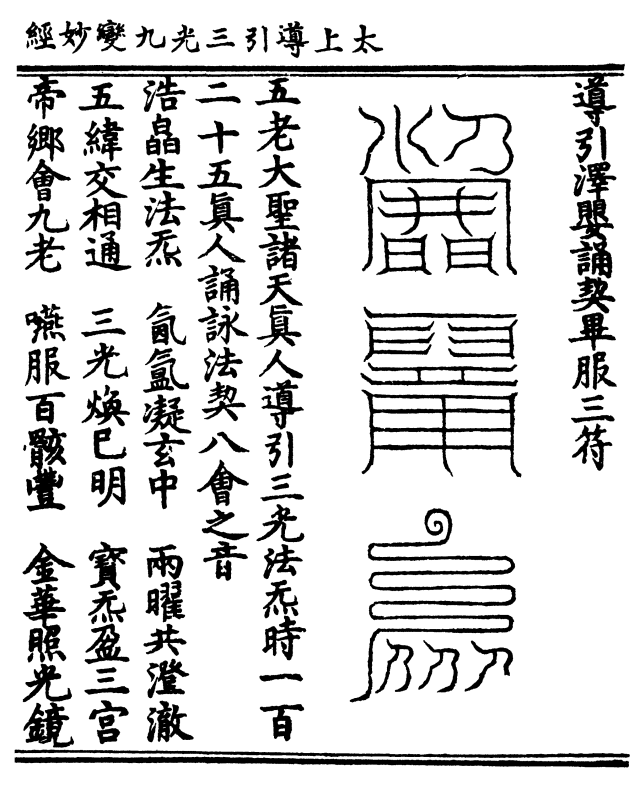 太上導引三光九變妙經
導引澤嬰誦契畢服三符
五老大聖諸天眞人導引三光法炁時一百
二十五眞人誦詠法契八會之音
浩晶生法炁　氤氳凝玄中　兩曜共澄澈
五緯交相通　三光煥已明　寶炁盈三宮
帝鄉會九老　嚥服百骸豐　金華照光鏡